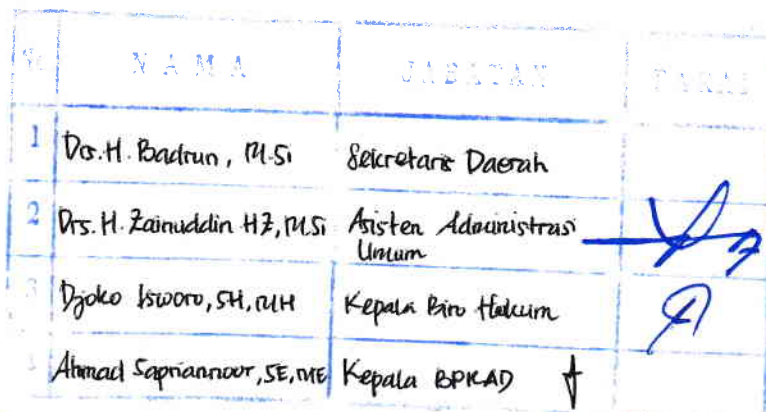 No NAMA JABATAN PARAF
1 Drs. H. Badrun, M.Si Sekretaris Daerah
2 Drs. H. Zainuddin HZ, M.Si Asisten Administrasi
Umum
3 Djoko Isworo, SH, MH Kepala Biro Hukum
Ahmad Sapriannoor, SE, ME Kepala BPKAD